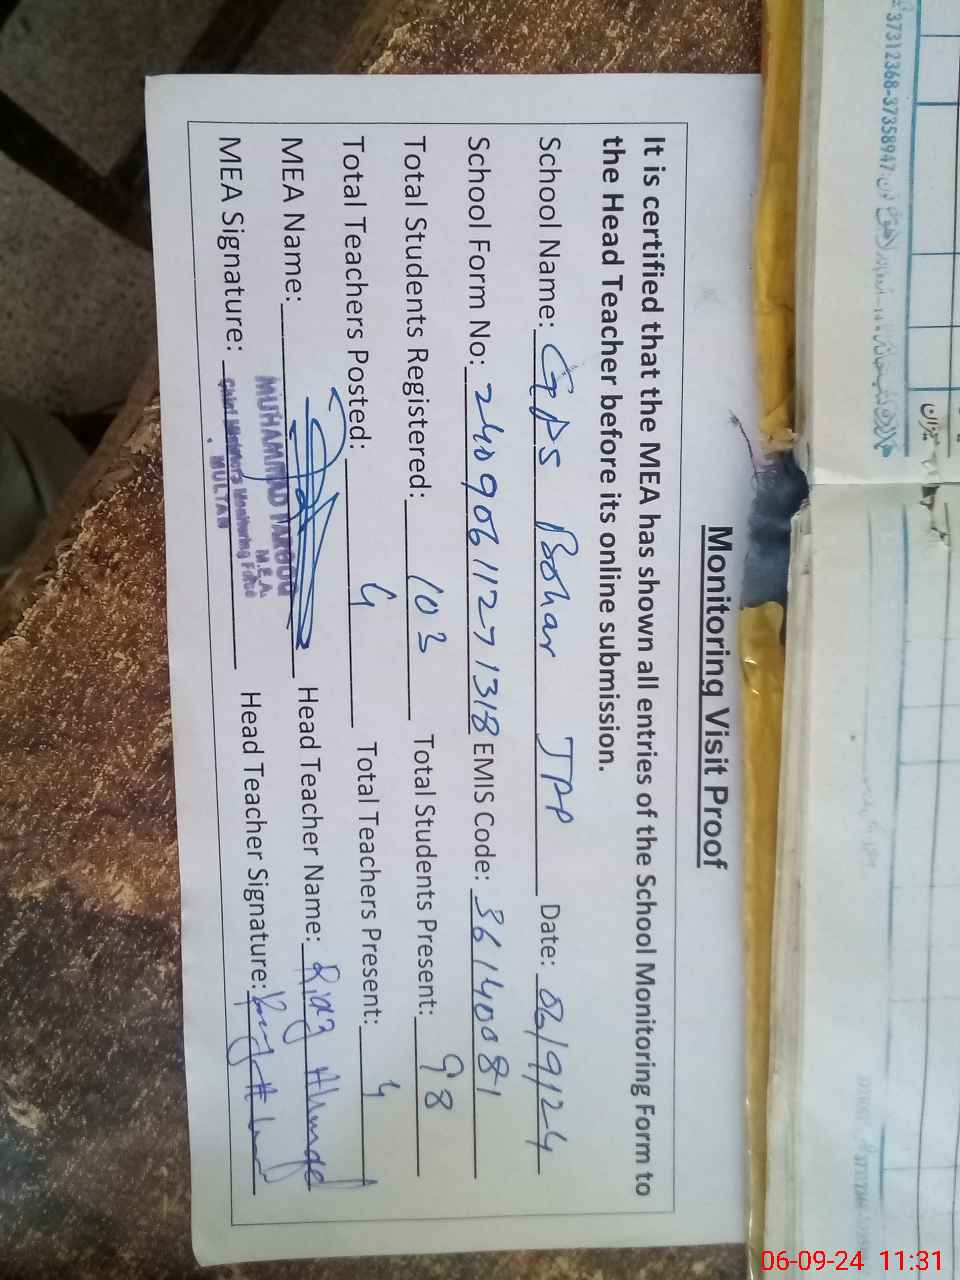 Monitoring Visit Proof
It is certified that the MEA has shown all entries of the School Monitoring Form to
the Head Teacher before its online submission.
School Name: GPS Bohar JPP Date: 06/9/24
School Form No: 24090611271318 EMIS Code: 36140081
Total Students Registered: 103 Total Students Present: 98
Total Teachers Posted: 4 Total Teachers Present: 4
MEA Name: Head Teacher Name: Riaz Ahmad
MEA Signature: Head Teacher Signature:
MUHAMMAD
M.E.A.
Chief Minister's Monitoring Force
MULTAN
37312368-37358947
میزان
06-09-24 11:31